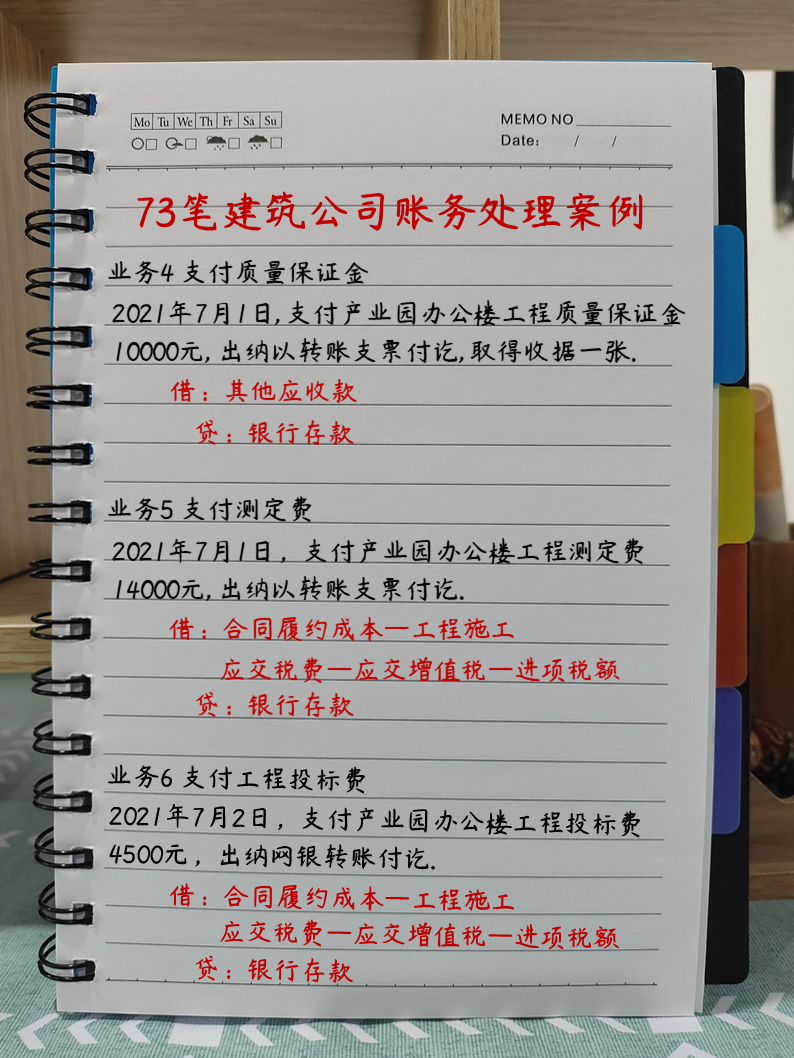 Mo Tu We Th Fr Sa Su
MEMO NO
Date: / /
73笔建筑公司账务处理案例
业务4 支付质量保证金
2021年7月1日,支付产业园办公楼工程质量保证金
10000元,出纳以转账支票付讫,取得收据一张.
借：其他应收款
贷：银行存款
业务5 支付测定费
2021年7月1日，支付产业园办公楼工程测定费
14000元,出纳以转账支票付讫.
借：合同履约成本—工程施工
应交税费—应交增值税—进项税额
贷：银行存款
业务6 支付工程投标费
2021年7月2日，支付产业园办公楼工程投标费
4500元，出纳网银转账付讫.
借：合同履约成本—工程施工
应交税费—应交增值税—进项税额
贷：银行存款